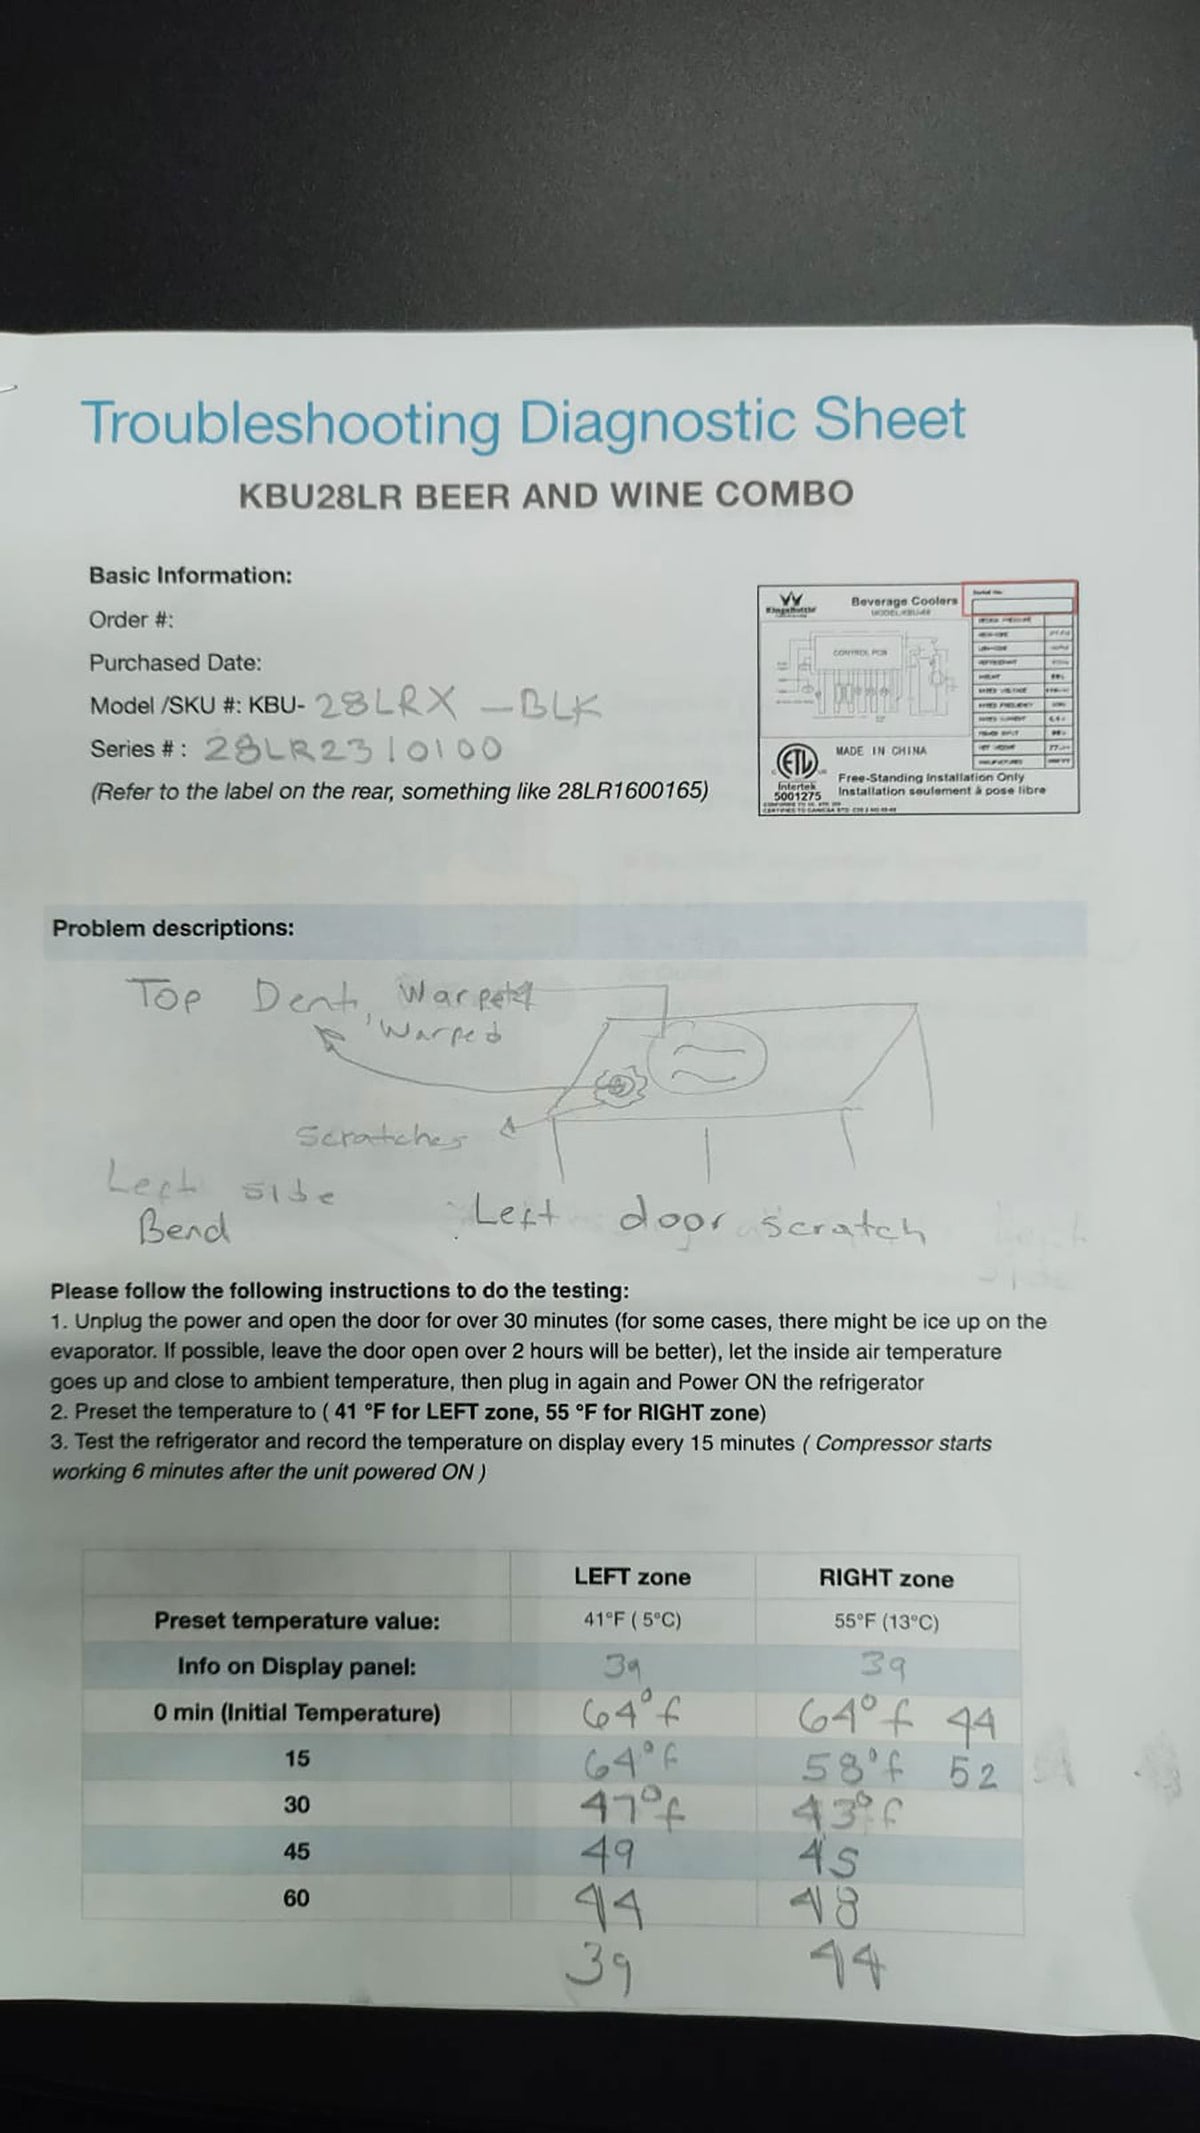 Troubleshooting Diagnostic Sheet
KBU28LR BEER AND WINE COMBO
Basic Information:
Order #:
Purchased Date:
Model /SKU #: KBU- 28LRX - BLK
Series # : 28LR2310100
(Refer to the label on the rear, something like 28LR1600165)
KingsBottle
Beverage Coolers
CONTROL PCB
ETL
Intertek
5001275
MADE IN CHINA
Free-Standing Installation Only
Installation seulement à pose libre
Problem descriptions:
Top Dent, Warped
Warped
Scratches
Left side
Bend
Left door scratch
Please follow the following instructions to do the testing:
1. Unplug the power and open the door for over 30 minutes (for some cases, there might be ice up on the
evaporator. If possible, leave the door open over 2 hours will be better), let the inside air temperature
goes up and close to ambient temperature, then plug in again and Power ON the refrigerator
2. Preset the temperature to ( 41 °F for LEFT zone, 55 °F for RIGHT zone)
3. Test the refrigerator and record the temperature on display every 15 minutes ( Compressor starts
working 6 minutes after the unit powered ON )
LEFT zone RIGHT zone
Preset temperature value: 41°F ( 5°C) 55°F (13°C)
Info on Display panel: 39 39
0 min (Initial Temperature) 64°f 64°f 44
15 64°f 58°f 52
30 47°f 43°f
45 49 45
60 44 48
39 44